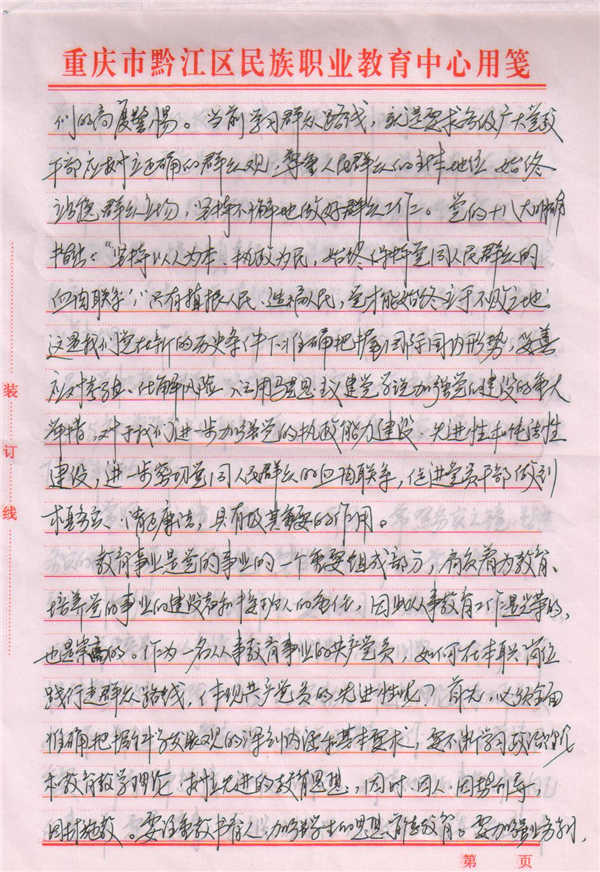 重庆市黔江区民族职业教育中心用笺
们的高度警惕。当前学习群众路线，就是要求各级广大党政
干部应树立正确的群众观，尊重人民群众的主体地位，始终
站稳群众立场，坚持不懈地做好群众工作。党的十八大
指出："坚持以人为本、执政为民，始终保持党同人民群众的
血肉联系"，只有植根人民、造福人民，党才能始终立于不败之地；
这是我们党在新的历史条件下准确把握国际国内形势，妥善
应对考验、化解风险、运用马克思主义建党学说加强党的建设的重大
举措，对于我们进一步加强党的执政能力建设、先进性和纯洁性
建设，进一步密切党同人民群众的血肉联系，促进党员干部做到
求真务实、清正廉洁，具有极其重要的作用。
教育事业是党的事业的一个重要组成部分，肩负着为教育、
培养党的事业的建设者和接班人的重任，因此从事教育工作是光荣的，
也是崇高的。作为一名从事教育事业的共产党员，如何在本职岗位
践行走群众路线，体现共产党员的先进性呢？首先，必须全面
准确把握科学发展观的深刻内涵和基本要求，要不断学习政治理论
和教育教学理论，树立先进的教育思想，因时、因人、因势利导，
因材施教。要注重教书育人，加强学生的思想、前途教育。要加强业务学习，
装
订
线
第 页